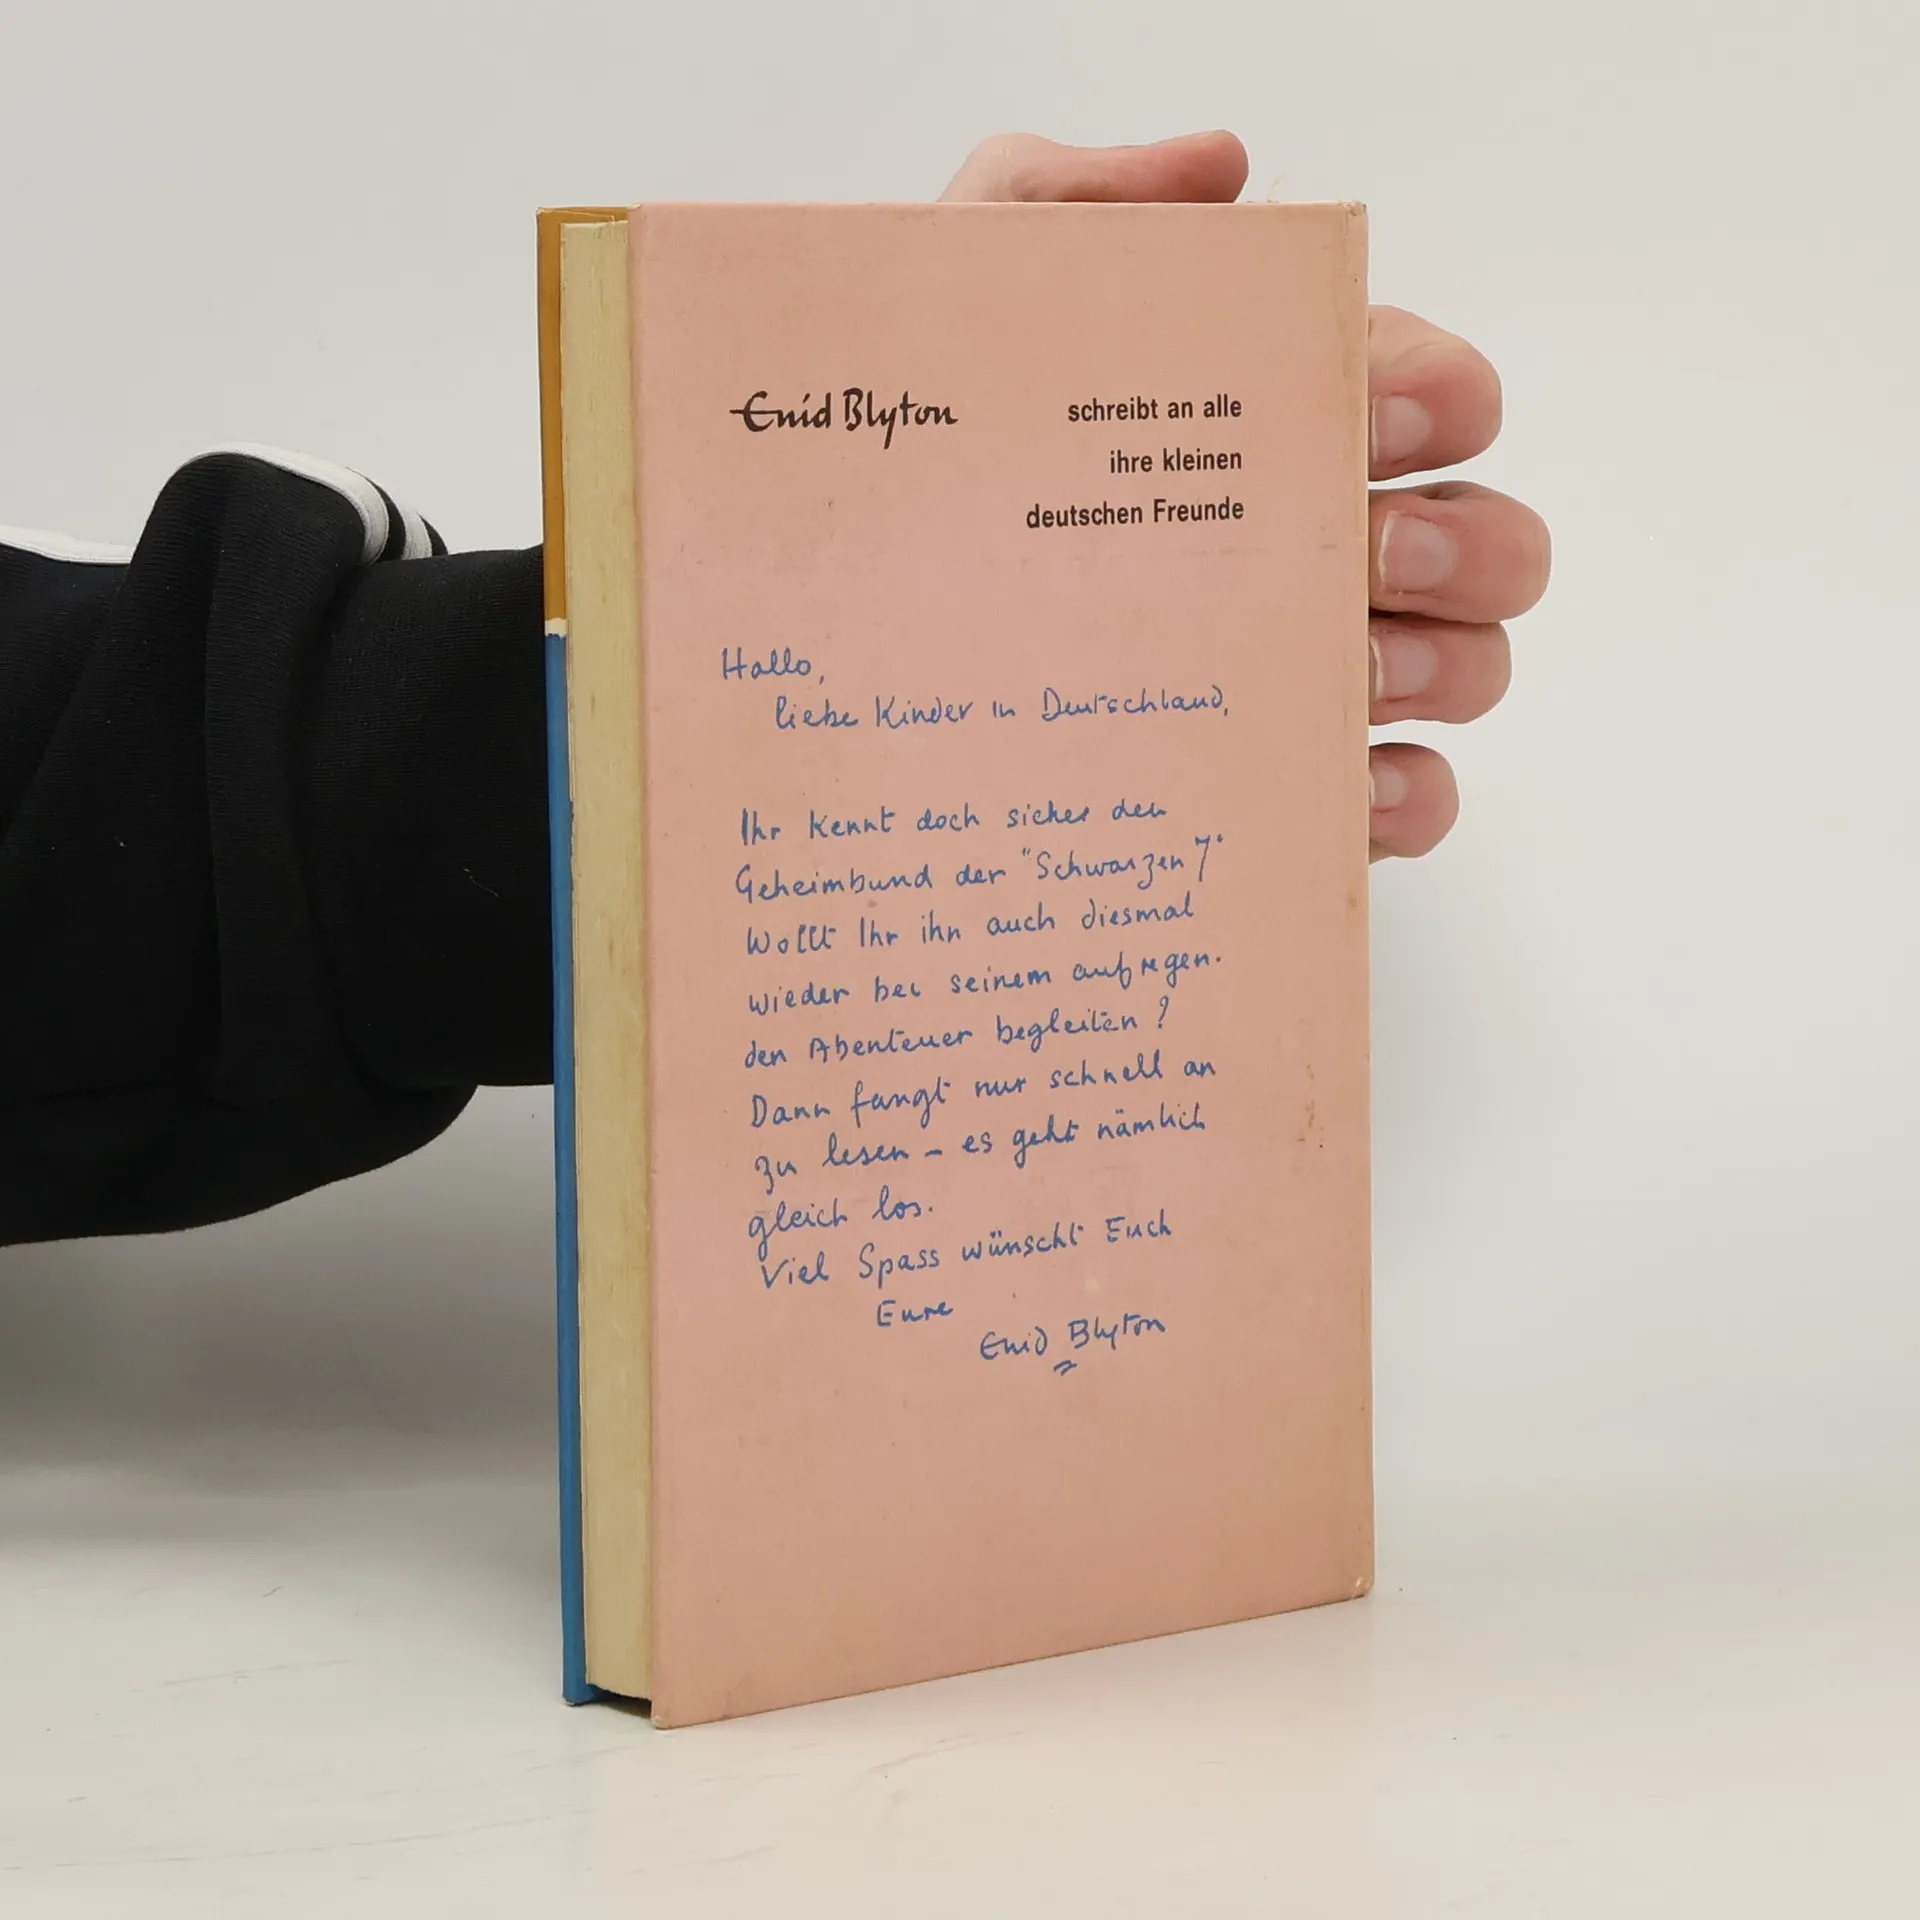 Enid Blyton schreibt an alle
ihre kleinen
deutschen Freunde
Hallo,
liebe Kinder in Deutschland,
Ihr kennt doch sicher den
Geheimbund der "Schwarzen 7"
Wollt Ihr ihn auch diesmal
wieder bei seinem aufregen-
den Abenteuer begleiten?
Dann fangt nur schnell an
zu lesen – es geht nämlich
gleich los.
Viel Spass wünscht Euch
Eure
Enid Blyton